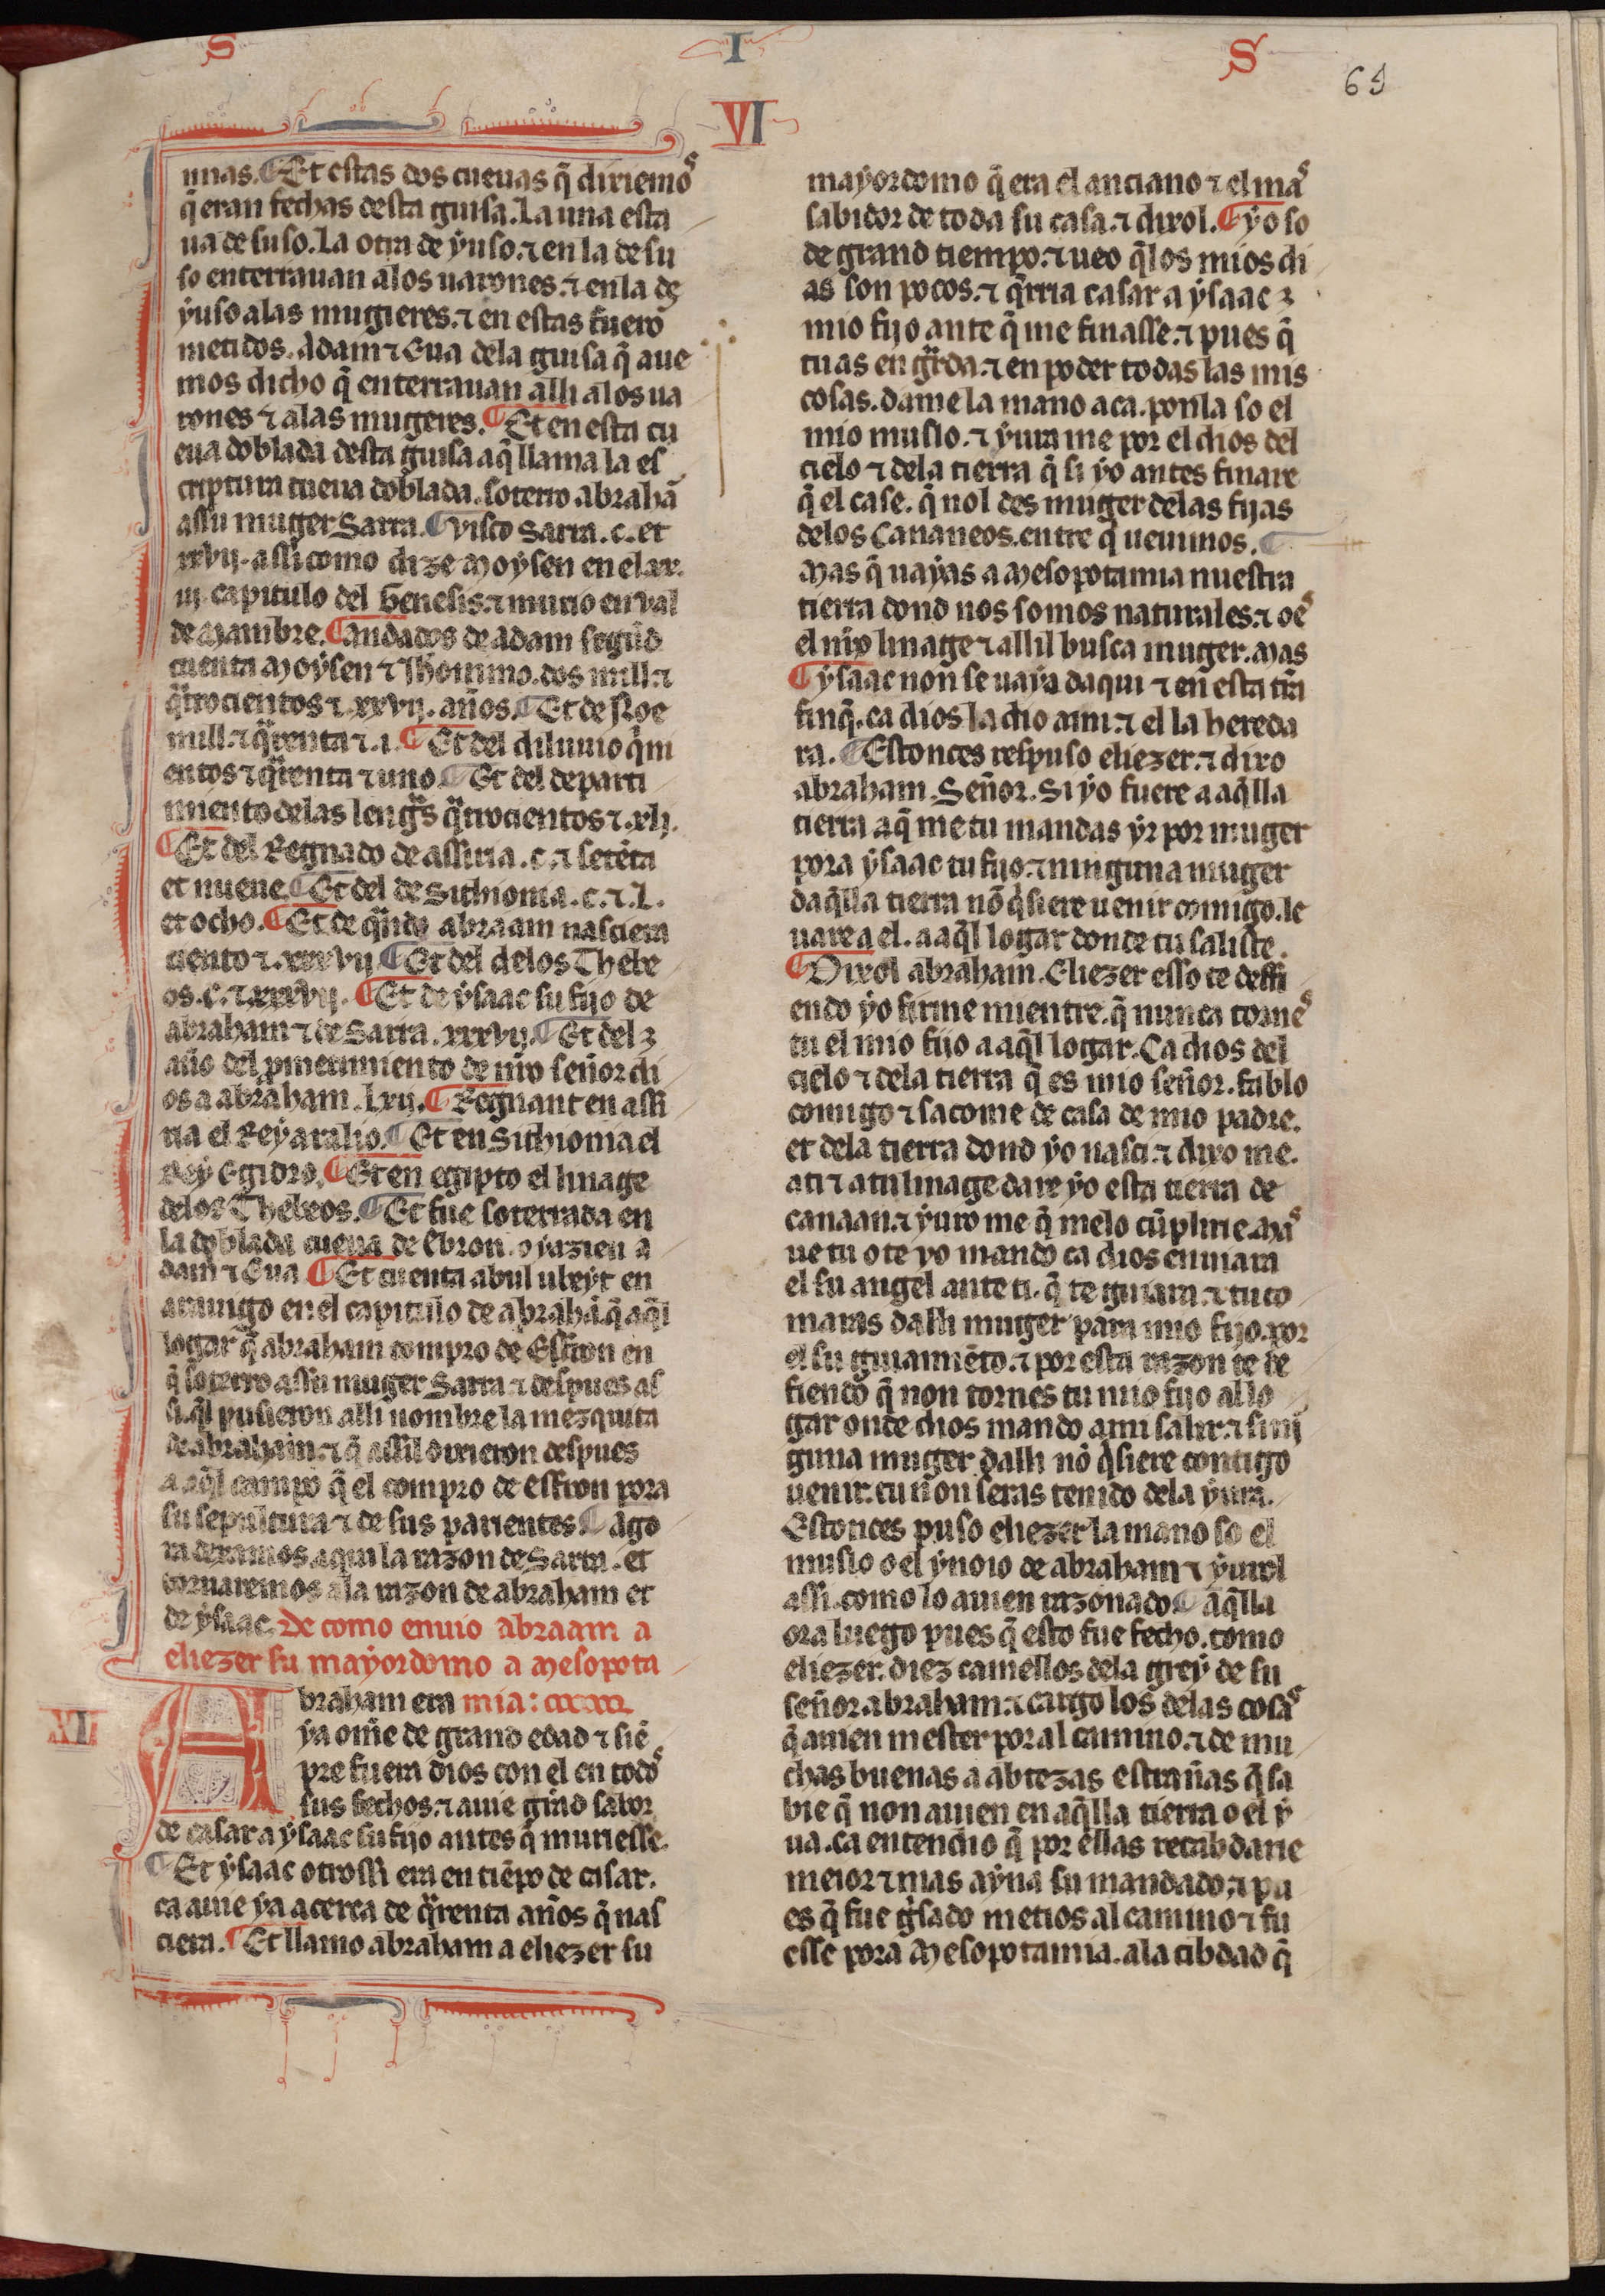 S I S
69
VI
unas. ¶ Et estas dos cueuas q̃ dixiemoˢ
q̃ eran fechas desta guisa. La una esta
ua de suso. La otra de ẏuso. ⁊ en la de su
so enterrauan alos uarones. ⁊ enla de
ẏuso alas mugieres. ⁊ en estas fuerõ
metidos. Adam ⁊ Eua dela guisa q̃ aue
mos dicho q̃ enterrauan alli alos ua
rones ⁊ alas mugeres. ¶ Et en esta cu
eua doblada desta guisa a q̃ llama la es
criptura cueua doblada. soterro abrahã
assu muger Sarra. ¶ visco Sarra. c. et
xxvij. assi como dize Moẏsen en el xx.
iij. capitulo del Genesis. ⁊ murio en val
de Mambre. ¶ Andados de adam segũd
cuenta Moẏsen ⁊ Jheronimo. dos mill. ⁊
q̃trocientos ⁊. xxvij. años. ¶ Et de Noe
mill. ⁊ q̃renta ⁊. i. ¶ Et del diluuio q̃ni
entos ⁊ q̃renta ⁊ uno. ¶ Et del departi
miento delas leng̃s q̃trocientos ⁊. xlj.
¶ Et del Regnado de assiria. c. ⁊ setẽta
et nueue. ¶ Et del de Sithionia. c. ⁊. L.
et ocho. ¶ Et de q̃ndo abraam nasciera
ciento ⁊. xxxvij. ¶ Et del delos Thebe
os. c. ⁊ xxxvij. ¶ Et de ẏsaac su fijo de
abraham ⁊ de Sarra. xxxvij. ¶ Et del
año del prometimiento de nr̃o señor di
os a abraham. lxij. ¶ Regnant en assi
ria el Reẏ aralio. ¶ Et en Sithionia el
Reẏ Egidro. ¶ Et en egipto el linage
delos Thebeos. ¶ Et fue soterrada en
la doblada cueua de Ebron. o yazien a
dam ⁊ Eua ¶ Et cuenta abul ubeẏt en
arauigo en el capitulo de abrahã. q̃ aq̃l
logar q̃ abraham compro de Efron en
q̃ soterro assu muger Sarra ⁊ despues as
si. q̃l pusieron alli nombre la mezquita
de abraham. ⁊ q̃ assil dixieron despues
a aq̃l campo q̃ el compro de effron pora
su sepultura ⁊ de sus parientes. ¶ Ago
ra dexamos aqui la razon de Sarra. et
tornaremos ala razon de abraham et
de ẏsaac. De como enuio abraam a
eliezer su mayordomo a Mesopota
XI
Abraham era mia:
ẏa om̃e de grand edad ⁊ siẽ
pre fuera dios con el en todoˢ
sus fechos. ⁊ auie grãd sabor
de casar a ẏsaac su fijo antes q̃ muriesse.
¶ Et ẏsaac otrossi era en tiẽpo de casar.
ca auie ẏa acerca de q̃renta años q̃ nas
ciera. ¶ Et llamo abraham a eliezer su
mayordomo q̃ era el anciano ⁊ el maˢ
sabidor de toda su casa. ⁊ dixol. ¶ ẏo so
de grand tiempo. ⁊ ueo q̃ los mios di
as son pocos. ⁊ q̃rria casar a ẏsaac
mio fijo ante q̃ me finasse. ⁊ pues q̃
tu as en gr̃da. ⁊ en poder todas las mis
cosas. dame la mano aca. ponla so el
mio muslo. ⁊ ẏura me por el dios del
cielo ⁊ dela tierra q̃ si ẏo antes finare
q̃ el case. q̃ nol des muger delas fijas
delos Cananeos. entre q̃ueuimos. ¶
Mas q̃ uaẏas a Mesopotamia nuestra
tierra dond nos somos naturales. ⁊ oeˢ
el nr̃o linage ⁊ allil busca muger. Mas
¶ ẏsaac non se uaẏa daqui ⁊ en esta tr̃ra
finq̃. ca dios la dio ami. ⁊ el la hereda
ra. ¶ Estonces respuso eliezer. ⁊ dixo
abraham. Señor. Si ẏo fuere a aq̃lla
tierra aq̃ me tu mandas ẏr por muger
pora ẏsaac tu fijo. ⁊ ninguna muger
daq̃lla tierra nõ q̃siere uenir comigo. le
uare a el. a aq̃l logar donde tu saliste.
¶ Dixol abraham. Eliezer esso te deffi
endo ẏo firme mientre. q̃ nunca torneˢ
tu el mio fijo a aq̃l logar. Ca dios del
cielo ⁊ dela tierra q̃ es mio señor. fablo
comigo ⁊ sacome de casa de mio padre.
et dela tierra dond ẏo nasci. ⁊ dixo me.
ati ⁊ atu linage dare ẏo esta tierra de
canaan. ⁊ ẏuro me q̃ melo cũplirie. Maˢ
ue tu o te yo mando ca dios enuiara
el su angel ante ti. q̃ te guiara. ⁊ tu to
maras dalli muger para mio fijo. por
el su guiamiẽto. ⁊ por esta razon te de
fiendo q̃ non tornes tu mio fijo al lo
gar onde dios mando ami salir. ⁊ si nĩ
guna muger dalli nõ q̃siere contigo
uenir. tu non seras tenido dela ẏura.
Estonces puso eliezer la mano so el
muslo o el ẏnoio de abraham ⁊ ẏurol
assi. como lo auien razonado. ¶ Aq̃lla
ora luego pues q̃ esto fue fecho. tomo
eliezer. diez camellos dela greẏ de su
señor abraham. ⁊ cargo los delas cosaˢ
q̃ auien mester poral camino. ⁊ de mu
chas buenas a abtezas estrañas q̃ sa
bie q̃ non auien en aq̃lla tierra o el ẏ
ua. ca entendio q̃ por ellas recabdarie
meior ⁊ mas aẏna su mandado. ⁊ pu
es q̃ fue g̃sado metios al camino ⁊ fu
esse pora Mesopotamia. ala cibdad q̃